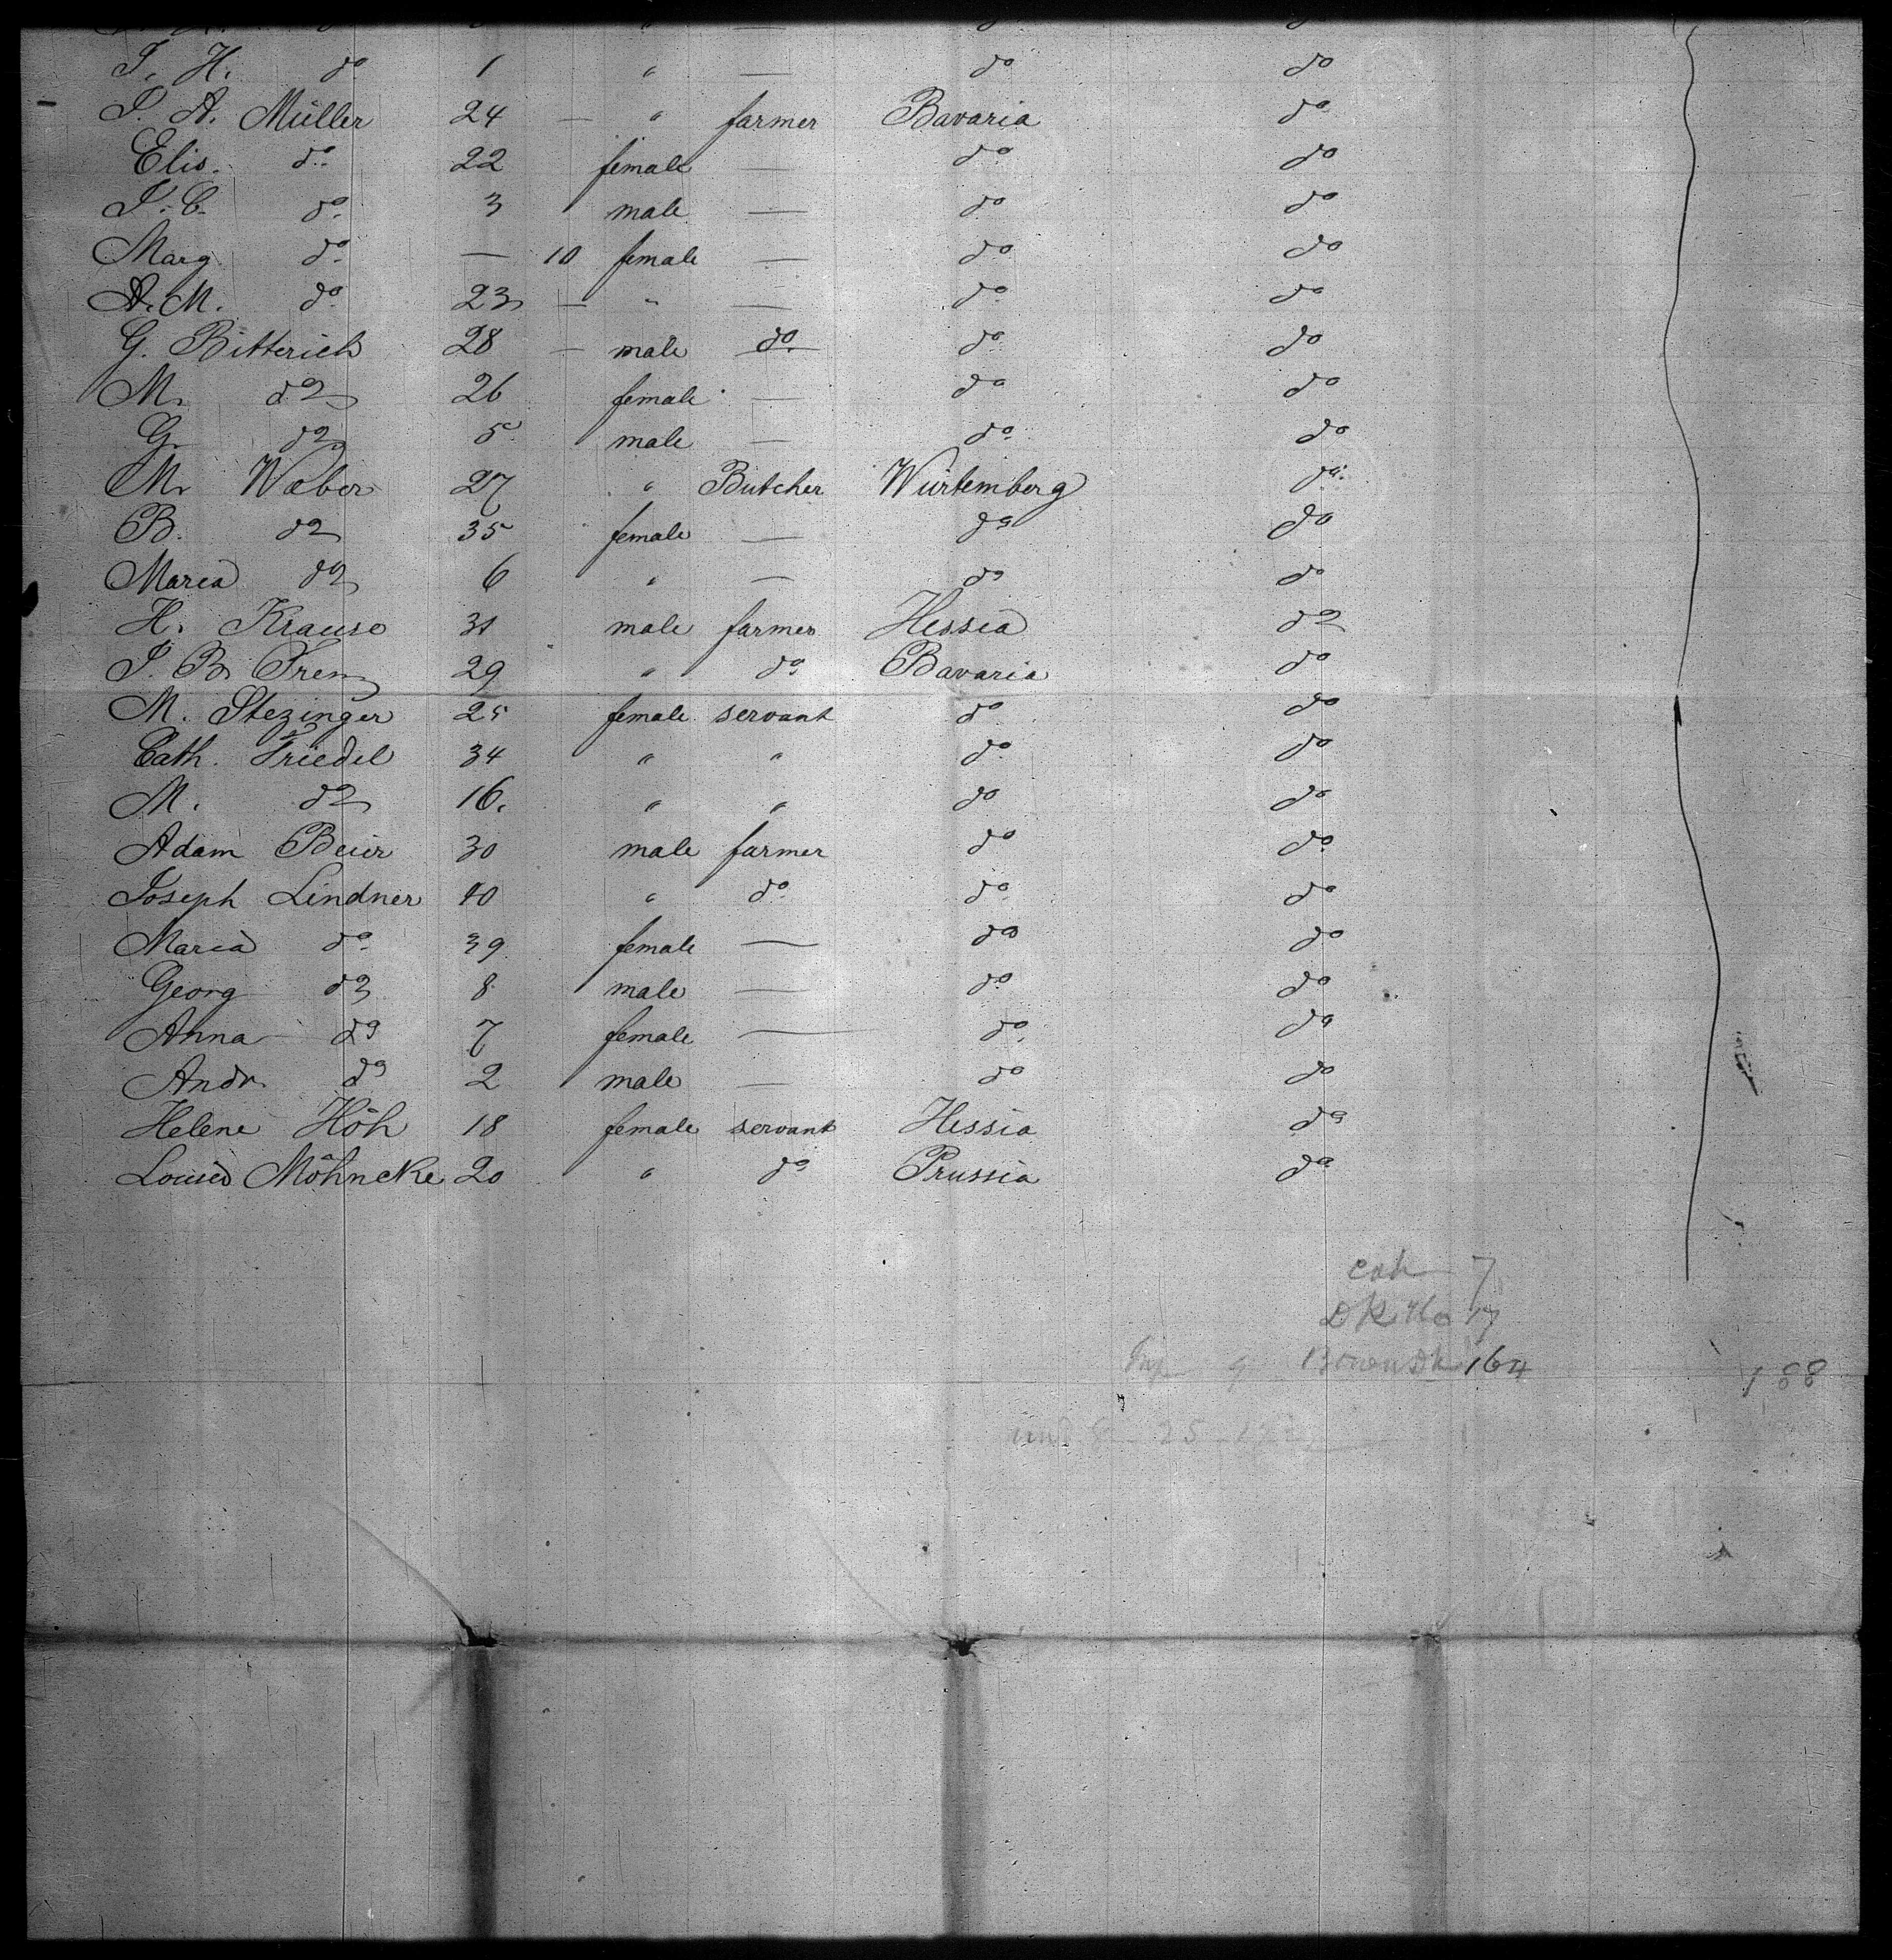 J. H. do 1 " — do do
J. A. Müller 24 — " farmer Bavaria do
Elis. do 22 female — do do
J. C. do 3 male — do do
Marg. do — 10 female — do do
A. M. do 23 — " — do do
G. Bitterich 28 — male do do do
M. do 26 female — do do
G. do 5 male — do do
M. Weber 27 " Butcher Würtemberg do
B. do 35 female — do do
Maria do 6 " — do do
H. Krause 31 male farmer Hessia do
J. B. 29 " do Bavaria do
M. Stezinger 25 female servant do do
Cath. Friedel 34 " " do do
M. do 16. " " do do
Adam Beier 30 male farmer do do
Joseph Lindner 40 " do do do
Maria do 39 female — do do
Georg do 8 male — do do
Anna do 7 female — do do
Andr. do 2 male — do do
Helene Höh 18 female servant Hessia do
Louise Möhncke 20 " do Prussia do
7
17
9 164 188
25